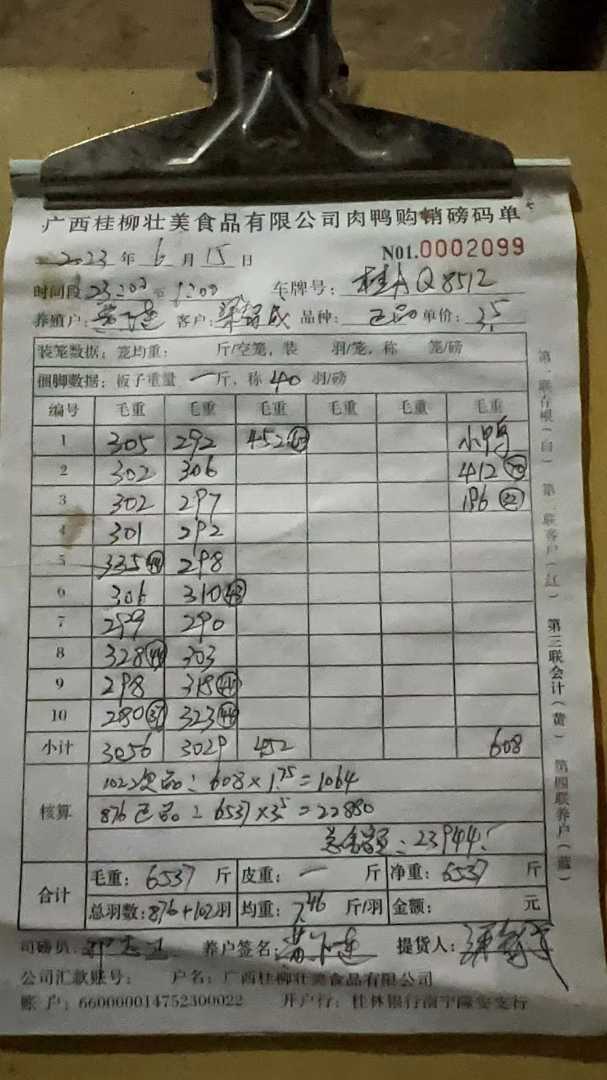 广西桂柳壮美食品有限公司肉鸭购销磅码单
2023 年 6 月 15 日 N01.0002099
时间段 23:00 至 1:00 车牌号: 桂AQ8512
养殖户: 客户: 品种: 正品 单价: 3.5
装笼数据: 笼均重: 斤/空笼, 装 羽/笼, 称 笼/磅
捆脚数据: 板子重量 一 斤, 称 40 羽/磅
编号 毛重 毛重 毛重 毛重 毛重 毛重
1 305 292 452 小鸭
2 302 306 412 70
3 302 297 196 32
4 301 292
5 335 44 298
6 306 310 43
7 299 290
8 328 44 303
9 298 318 44
10 280 37 323 44
小计 3056 3029 452 608
核算
102次品: 608×1.75=1064
876正品: 6537×3.5=22880
总金额: 23944.
合计
毛重: 6537 斤 皮重: 一 斤 净重: 6537 斤
总羽数: 876+102 羽 均重: 7.46 斤/羽 金额: 元
司磅员: 养户签名: 提货人:
公司汇款账号: 户名: 广西桂柳壮美食品有限公司
账户: 660000014752300022 开户行: 桂林银行南宁隆安支行
第一联存根(白) 第二联客户(红) 第三联会计(黄) 第四联养户(蓝)